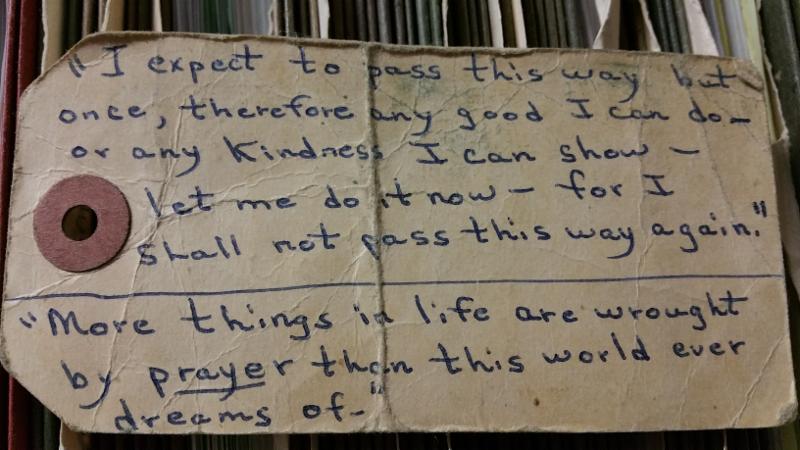 "I expect to pass this way but
once, therefore any good I can do—
or any Kindness I can show —
let me do it now — for I
shall not pass this way again."
"More things in life are wrought
by prayer than this world ever
dreams of-"